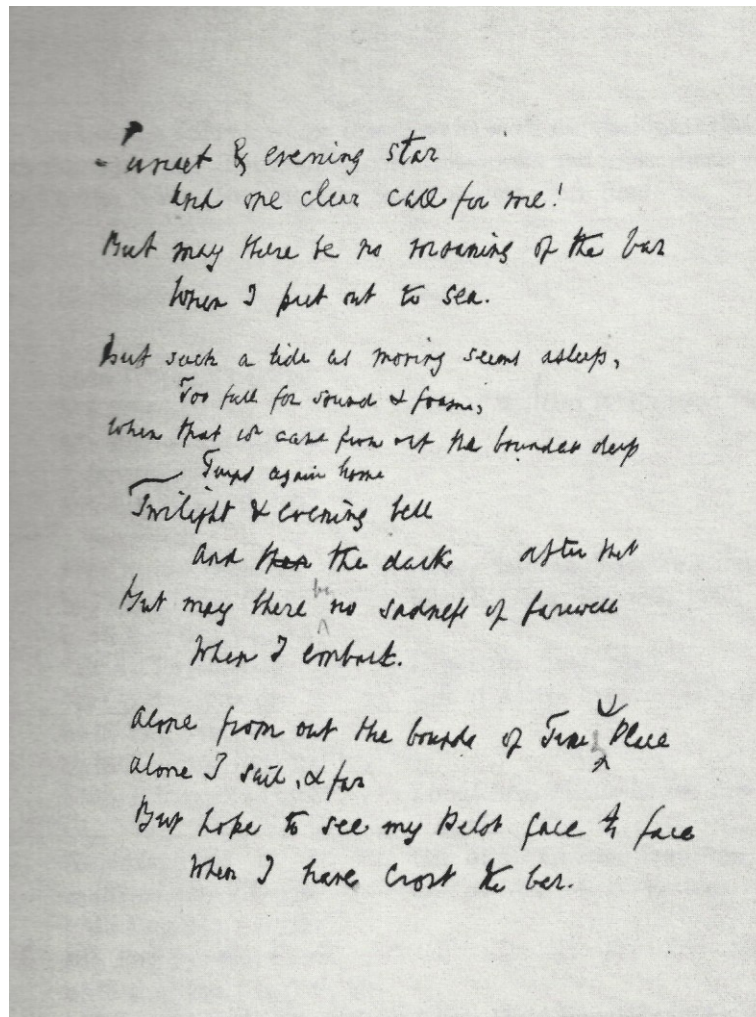 Sunset & evening star
And one clear call for me!
But may there be no moaning of the bar
When I put out to sea.
But such a tide as moving seems asleep,
Too full for sound & foam,
When that wh came from out the boundless deep
Turns again home
Twilight & evening bell
And then the dark after that
But may there be no sadness of farewell
When I embark.
Alone from out the bounds of Time & Place
Alone I sail, & far
But hope to see my Pilot face to face
When I have crost the bar.